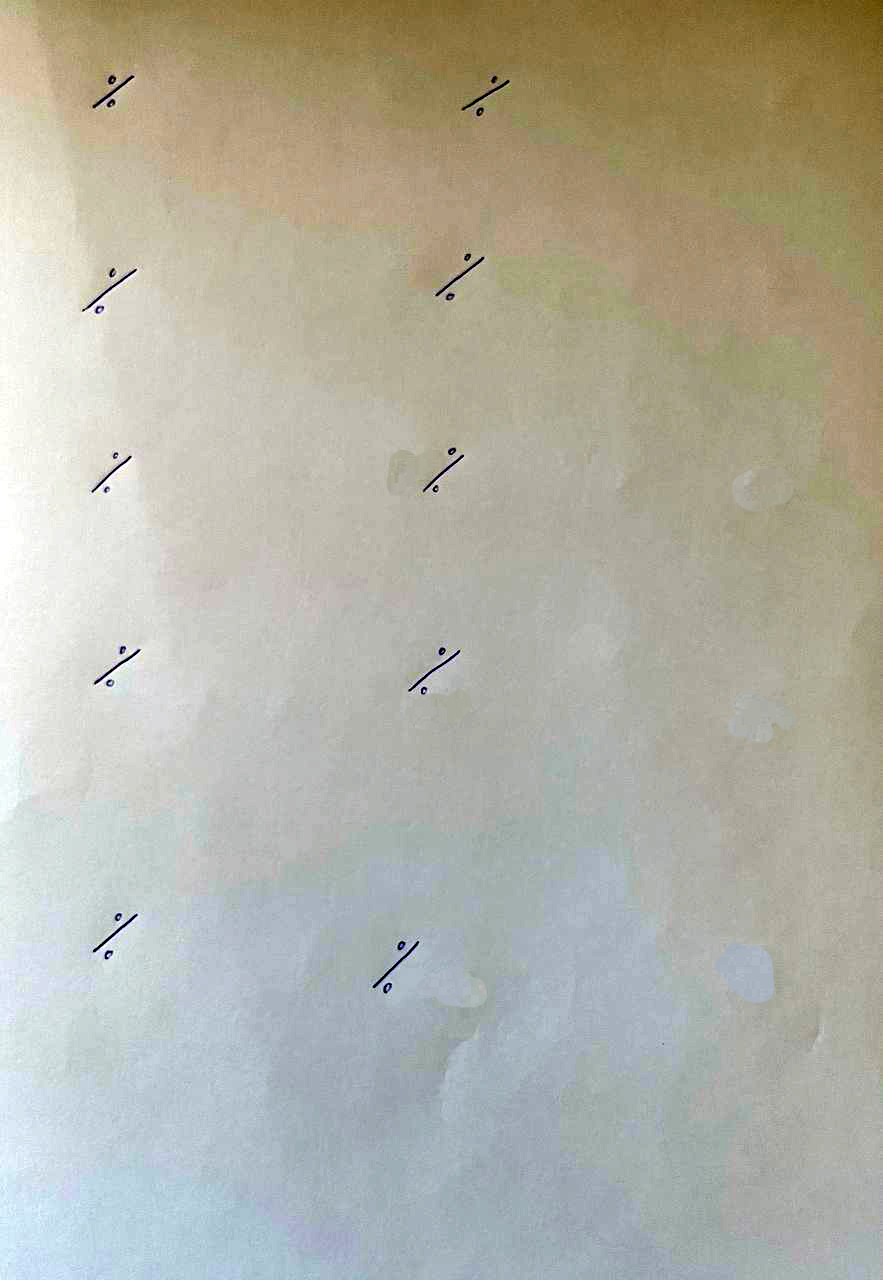 % %
% %
% %
% %
% %